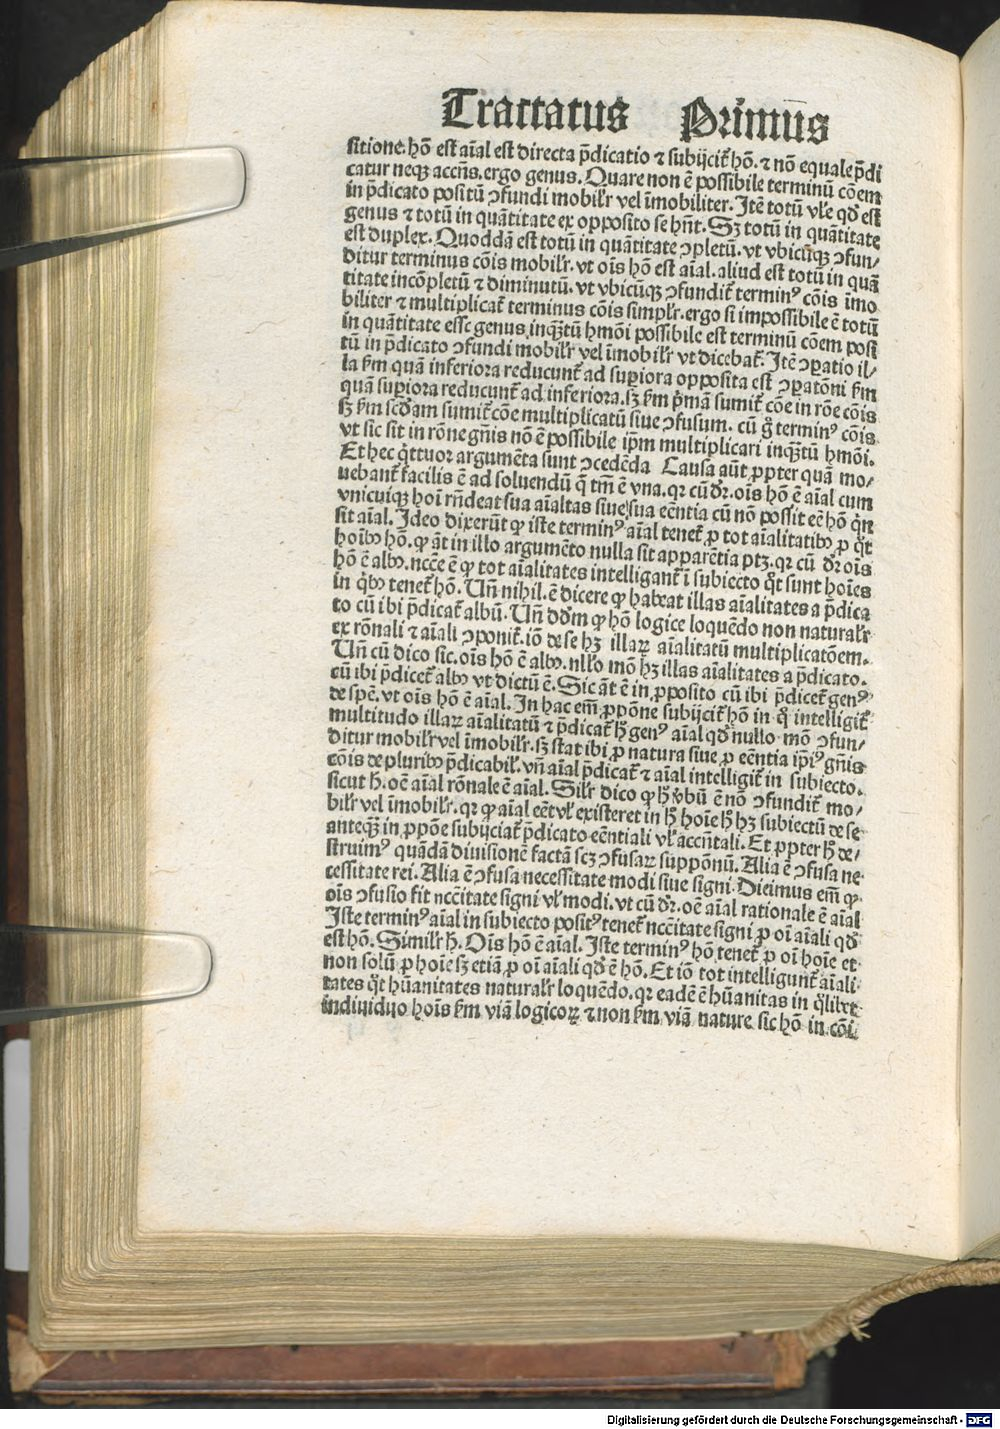 Tractatus Primus̄
sitione. hō est aīal est directa p̄dicatio ⁊ subijcit᷑ hō. ⁊ nō equale p̄di
catur neqꝫ accn̄s. ergo genus. Quare non ē possibile terminū cōem
in p̄dicato positū ↄfundi mobilr̄ vel īmobiliter. Itē totū vl̄e qd̄ est
genus ⁊ totū in quātitate ex opposito se hn̄t. Sꝫ totū in quātitate
est duplex. Quoddā est totū in quātitate ↄpletū. vt vbicūqꝫ ↄfun/
ditur terminus cōis mobilr̄. vt oīs hō est aīal. aliud est totū in quā
titate incōpletū ⁊ diminutū. vt vbicūqꝫ ↄfundit᷑ terminꝰ cōis īmo
biliter ⁊ multiplicat᷑ terminus cōis simplr̄. ergo si impossibile ē totū
in quātitate esse genus inqꝫtū hmōi possibile est terminū cōem posi
tū in p̄dicato ↄfundi mobilr̄ vel īmobilr̄ vt dicebat᷑. Itē ↄꝑatio il/
la ẜm quā inferiora reducunt᷑ ad suꝑiora opposita est ↄꝑatōni ẜm
quā suꝑiora reducunt᷑ ad inferiora. sꝫ ẜm p̄mā sumit᷑ cōe in rōe cōis
sꝫ ẜm scd̄am sumit᷑ cōe multiplicatū siue ↄfusum. cū gͦ terminꝰ cōis
vt sic sit in rōne gn̄is nō ē possibile ip̄m multiplicari inqꝫtū hmōi.
Et hec q̇ttuor argumēta sunt ↄcedēda Causa aūt ꝓpter quā mo/
uebant᷑ facilis ē ad soluendū q̄ tm̄ ē vna. qꝛ cū dr̄. oīs hō ē aīal cum
vnicuiqꝫ hoī rn̄deat sua aīaltas siue sua eēntia cū nō possit eē hō q̇n
sit aīal. Ideo dixerūt ꝙ iste terminꝰ aīal tenet᷑ ꝓ tot aīalitatibꝰ ꝓ q̊t
hoībꝰ hō. ꝙ āt in illo argumēto nulla sit apparētia ptꝫ. qꝛ cū dr̄ oīs
hō ē albꝰ. nccē̄ ē ꝙ tot aīalitates intelligant᷑ ī subiecto q̊t sunt hoīes
in q̇bꝰ tenet᷑ hō. Un̄ nihil. ē dicere ꝙ habeat illas aīalitates a p̄dica
to cū ibi p̄dicat᷑ albū. Un̄ dd̄m ꝙ hō logice loquēdo non naturalr̄
ex rōnali ⁊ aīali ↄponit᷑. iō de se hꝫ illaꝝ aīalitatū multiplicatōem.
Un̄ cū dico sic. oīs hō ē albꝰ. nll̄o mō hꝫ illas aīalitates a p̄dicato.
cū ibi p̄dicet᷑ albꝰ vt dictū ē. Sic āt ē in ꝓposito cū ibi p̄dicet᷑ genꝰ
de spē. vt oīs hō ē aīal. In hac em̄ ꝓpōne subijcit᷑ hō in q̊ intelligit᷑
multitudo illaꝝ aīalitatū ⁊ p̄dicat᷑ h̊ genꝰ aīal qd̄ nullo mō ↄfun/
ditur mobilr̄ vel īmobilr̄. sꝫ stat ibi ꝓ natura siue ꝓ eēntia ip̄iꝰ gn̄is
cōis de pluribꝰ p̄dicabil̄. vn̄ aīal p̄dicat᷑ ⁊ aīal intelligit᷑ in subiecto.
sicut h̊. oē aīal rōnale ē aīal. Silr̄ dico ꝙ h̊ v̓bū ē nō ↄfundit᷑ mo/
bilr̄ vel īmobilr̄. qꝛ ꝙ aīal eēt vl̄ existeret in h̊ hoīe h̊ hꝫ subiectū de se
anteqꝫ in ꝓpōe subijciat᷑ p̄dicato eēntiali vl̄ accn̄tali. Et ꝓpter h̊ de/
struimꝰ quādā diuisionē factā scꝫ ↄfusaꝝ suppōnū. Alia ē ↄfusa ne
cessitate rei. Alia ē ↄfusa necessitate modi siue signi. Dicimus em̄ ꝙ
oīs ↄfusio fit nccītate signi vl̄ modi. vt cū dr̄. oē aīal rationale ē aīal
Iste terminꝰ aīal in subiecto positꝰ tenet᷑ nccītate signi ꝓ oī aīali qd̄
est hō. Similr̄ h̊. Oīs hō ē aīal. Iste terminꝰ hō tenet᷑ ꝓ oī hoīe et
non solū ꝓ hoīe sꝫ etiā ꝓ oī aīali qd̄ ē hō. Et iō tot intelligunt᷑ aīali
tates q̊t hūanitates naturalr̄ loquēdo. qꝛ eadē ē hūanitas in q̊libet
indiuiduo hoīs ẜm viā logicoꝝ ⁊ non ẜm viā nature sic hō in cōi
Digitalisierung gefördert durch die Deutsche Forschungsgemeinschaft - DFG